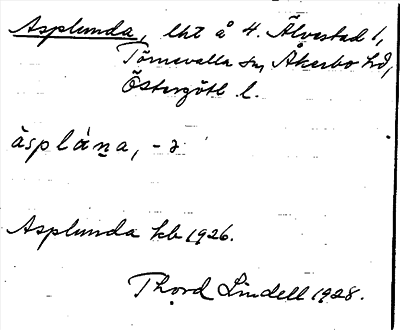 Asplunda, lht å 4. Älvestad 1,
Törnevalla sn, Åkerbo hd,
Östergötl l.
äsplána, -ə
Asplunda kb 1926.
Thord Lindell 1928.